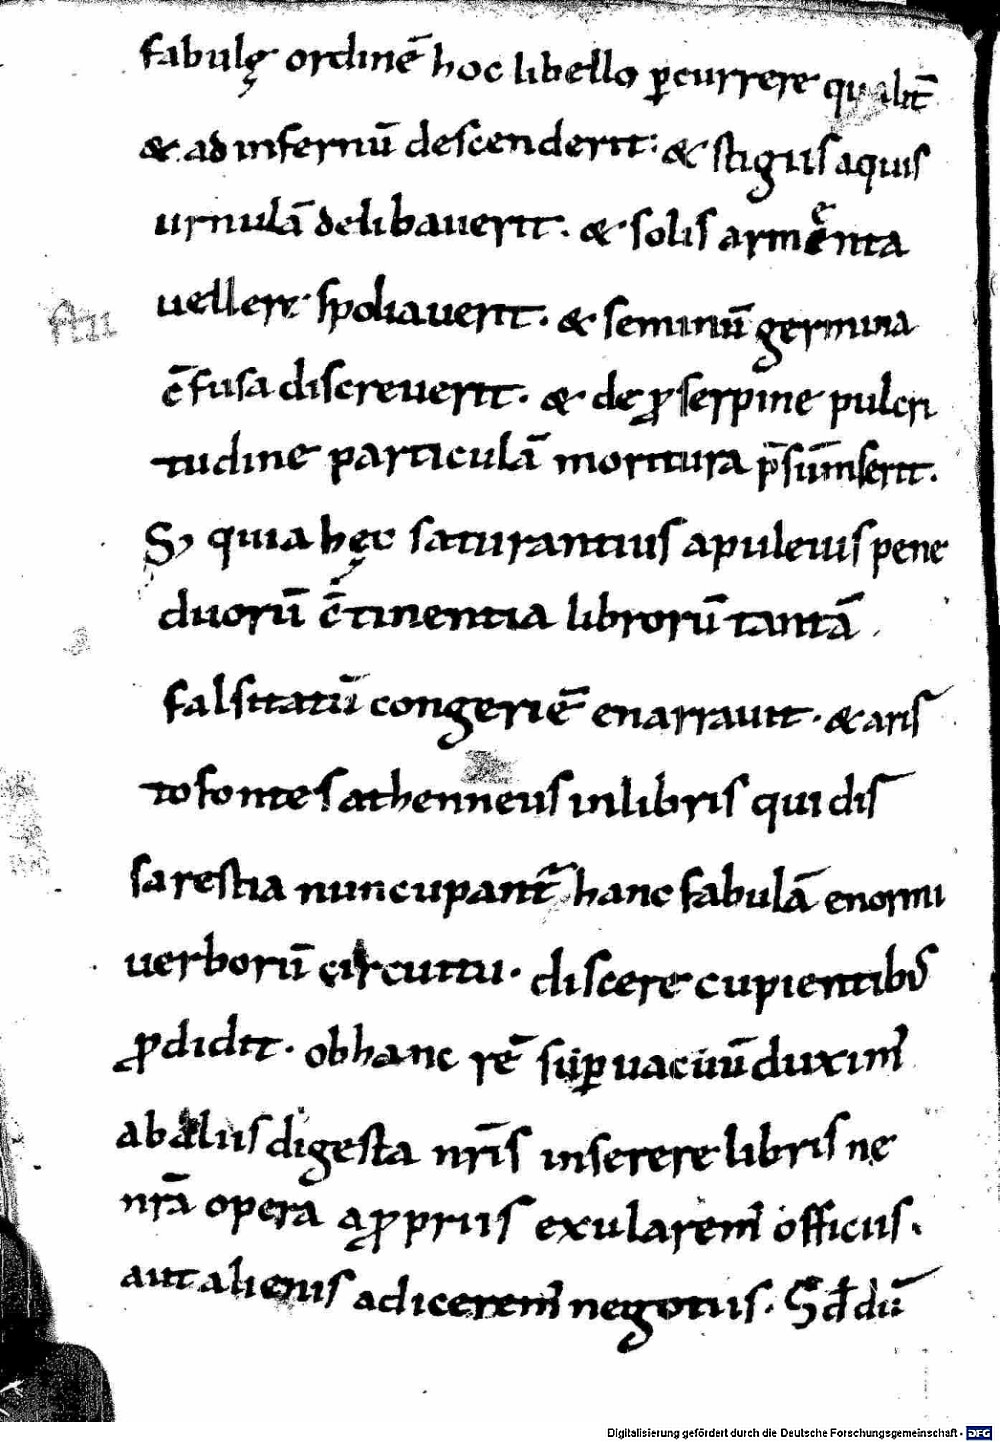 fabulę ordinē hoc libello ꝑcurrere qualit̄
& ad infernū descenderit: & stigiis aquis
urnulā delibauerit. & solis armenta
uellere spoliauerit. & seminū germina
c̄fusa discreuerit. & de ꝓserpine pulcri
tudine particulā moritura p̄sūmserit.
S; quia hęc saturantius apuleius pene
duorū c̄tinentia librorū tantā
falsitatū congeriē enarrauit. & aris
tofontes athenneus in libris qui dis
sarestia nuncupant̄ hanc fabulā enormi
uerborū circuitu. discere cupientibꝰ
ꝓdidit. ob hanc rē suꝑuacuū duximꝰ
ab aliis digesta nr̄is inserere libris ne
nr̄ā opera a ꝓpriis exularemꝰ officiis.
aut alienis adiceremꝰ negotiis. Sed dū
Digitalisierung gefördert durch die Deutsche Forschungsgemeinschaft - DFG